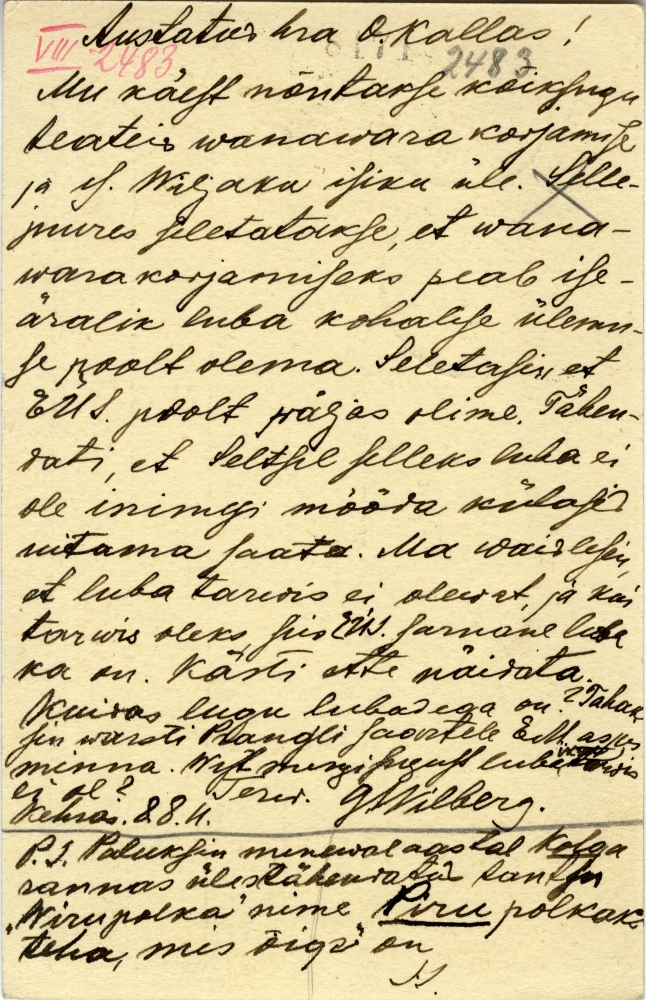 Austatud hra O. Kallas!
VIII 2483 2483
Mu käest nõutakse kõiksugu
teateid wanawara korjamise
ja if. Wiljaku isiku üle. Selle-
juures seletatakse, et wana-
wara korjamiseks peab ise-
äralik luba kohalise ülemu-
se poolt olema. Seletasin, et
EÜS. poolt wäljas olime. Tähen-
dati, et Seltsil selleks luba ei
ole inimesi mööda külasid
uitama saata. Ma waidlesin,
et luba tarwis ei olewat, ja kui
tarwis oleks, siis EÜS. sarnane luba
ka on. Kästi ette näidata.
Kuidas lugu lubadega on? Tahak-
sin warsti Prangli saartele EÜS. asjus
minna. Wist mingisugust luba tarwis
ei ole? Terw. G Wilberg.
Kehras. 8.8.11.
P.S. Paluksin minewal aastal Kolga
rannas ülestähendatud tantsu
"Wiru polka" nime "Piru polkaks
teha, mis õige" on